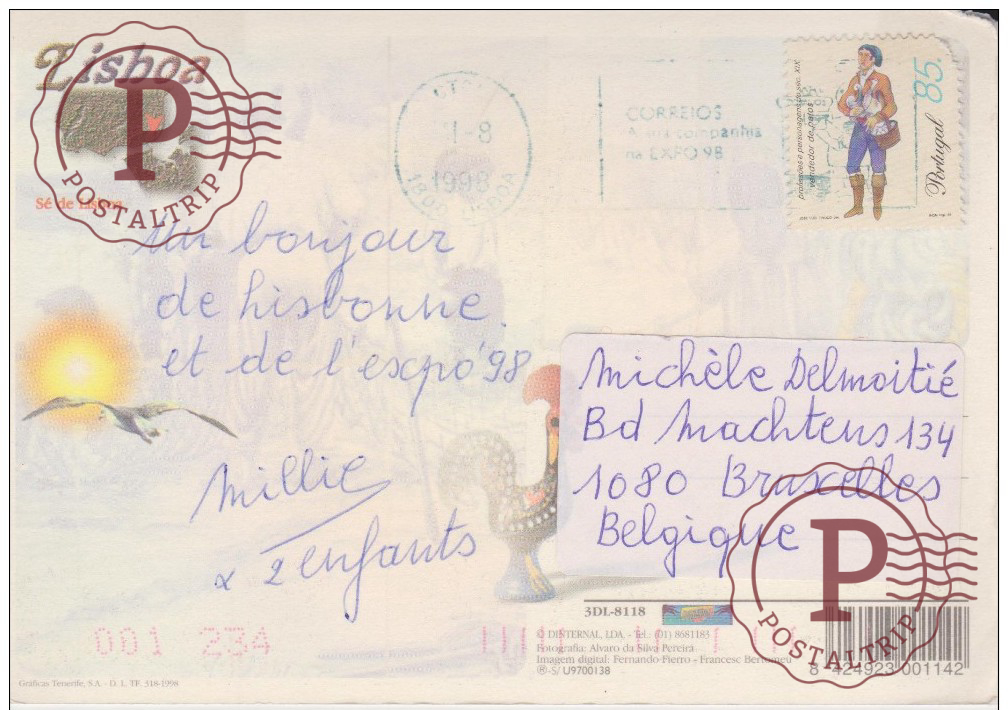 Lisboa
POSTALTRIP
Sé de Lisboa
1998
CORREIOS
A sua companhia
na EXPO 98
profissões e personagens do séc. XIX
vendedor de patos
Portugal 85.
Un bonjour
de Lisbonne
et de l'expo '98
Millie
& 2 enfants
Michèle Delmoitié
Bd Machtens 134
1080 Bruxelles
Belgique
001 234
3DL-8118
© DINTERNAL, LDA. - Tel.: (01) 8681183
Fotografia: Alvaro da Silva Pereira
Imagem digital: Fernando Fierro - Francesc Bertomeu
®-S/ U9700138
8 424923 001142
POSTALTRIP
Gráficas Tenerife, S.A. - D. L. TF. 318-1998